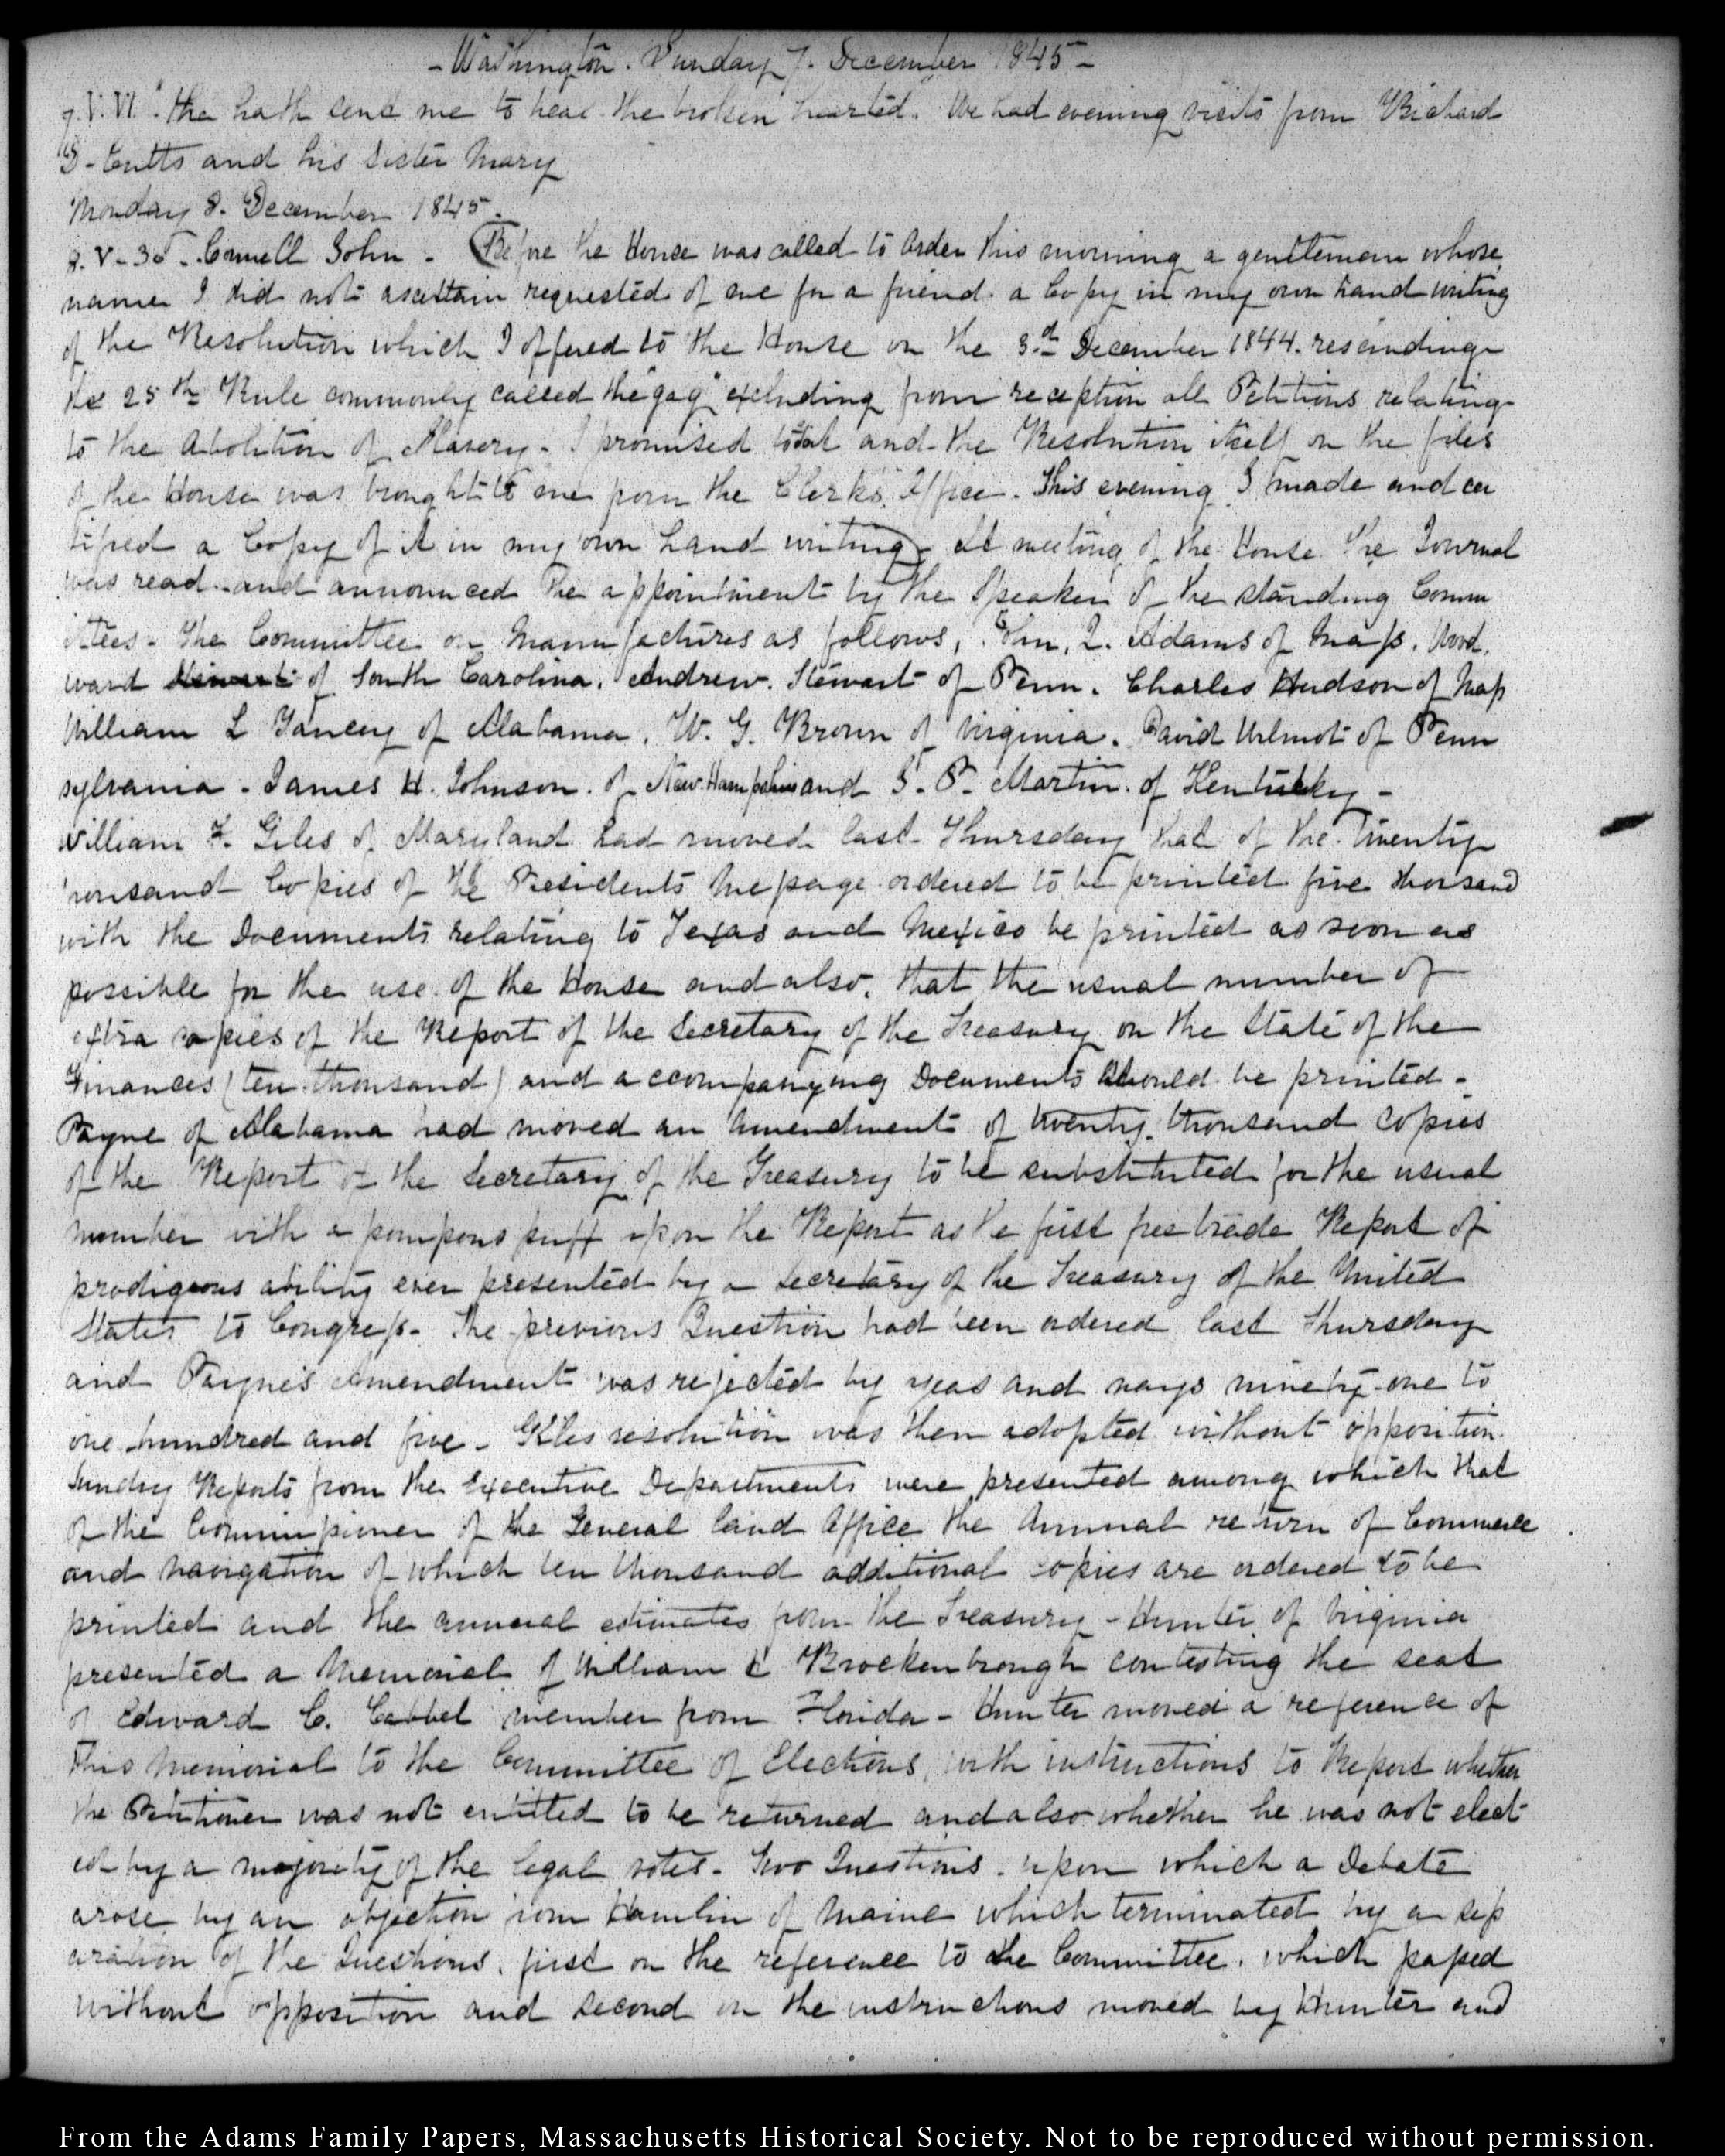 - Washington. Sunday 7. December 1845 -
7. V. VI. "the hath send me to heal the broken hearted. We had evening visits from Richard
D- Cutts and his sister Mary
Monday 8. December 1845.
8. V-30-. Connell John - (Before the House was called to order this morning a gentleman whose
name I did not ascertain requested of me for a friend. a Copy in my own hand writing
of the Resolution which I offered to the House on the 3d. December 1844. rescinding
the 25th Rule commonly called the "gag" excluding from reception all Petitions relating
to the Abolition of Slavery - I promised and the Resolution itself on the files
of the House was brought to me from the Clerk's Office. This evening I made and cer
tified a Copy of it in my own hand writing) At meeting of the House the Journal
was read and announced the appointment by the Speaker of the standing Comm
ittees - The Committee on Manufactures as follows, John, Q. Adams of Mass. Wood,
ward Stewart of South Carolina. Andrew. Stewart of Penn. Charles Hudson of Mass
William L Yancey of Alabama. W. G. Brown of Virginia. David Wilmot of Penn
sylvania - James H. Johnson. of New Hampshire and J. P. Martin. of Kentucky -
William F. Giles of Maryland had moved last Thursday that of the twenty
thousand Copies of the Presidents Message ordered to be printed five thousand
with the Documents relating to Texas and Mexico be printed as soon as
possible for the use of the House and also, that the usual number of
extra copies of the Report of the Secretary of the Treasury on the State of the
Finances (ten thousand) and accompanying Documents should be printed -
Payne of Alabama had moved an Amendment of twenty thousand copies
of the Report of the Secretary of the Treasury to be substituted for the usual
number with a pompous puff upon the Report as the first free trade Report of
prodigious ability ever presented by a Secretary of the Treasury of the United
States to Congress - The previous Question had been ordered last Thursday
and Payne's Amendment was rejected by yeas and nays ninety-one to
one hundred and five - Giles resolution was then adopted without opposition.
Sundry Reports from the Executive Departments were presented among which that
of the Commissioner of the General Land Office the Annual return of Commerce
and navigation of which ten thousand additional copies are ordered to be
printed and the annual estimates from the Treasury - Hunter of Virginia
presented a Memorial of William Brockenbrough contesting the seat
of Edward C. Cabbel member from Florida - Hunter moved a reference of
this memorial to the Committee of Elections, with instructions to Report whether
the Petitioner was not entitled to be returned and also whether he was not elect
ed by a majority of the legal votes - Two Questions. upon which a Debate
arose by an objection from Hamlin of Maine which terminated by a sep
aration of the Questions, first on the reference to the Committee. which passed
without opposition and second on the instructions moved by Hunter and
From the Adams Family Papers, Massachusetts Historical Society. Not to be reproduced without permission.